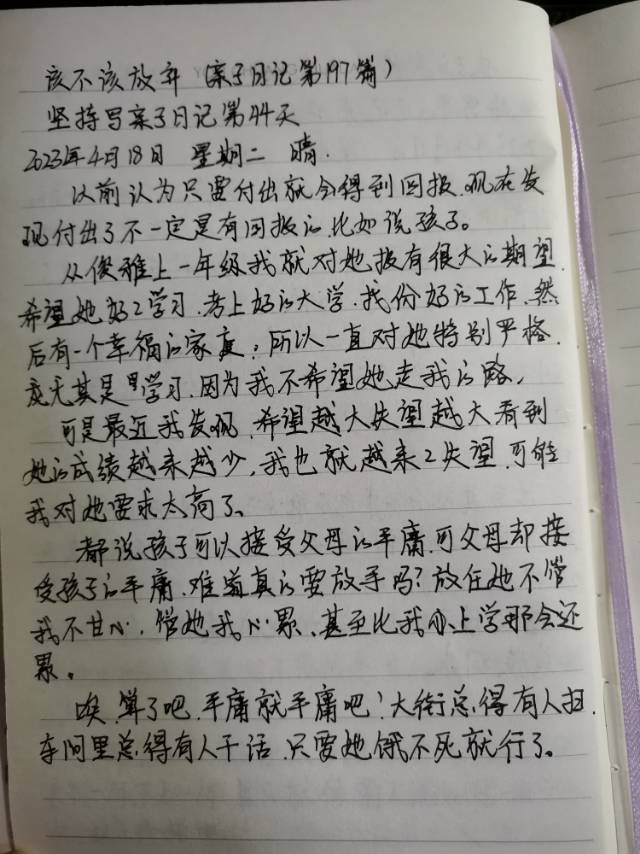 该不该放弃（亲子日记第197篇）
坚持写亲子日记第44天
2023年4月18日 星期二 晴.
以前认为只要付出就会得到回报.现在发
现付出了不一定是有回报的比如说孩子。
从俊雅上一年级我就对她报有很大的期望.
希望她好好学习.考上好的大学.找份好的工作.然
后有一个幸福的家庭；所以一直对她特别严格.
尤其是学习.因为我不希望她走我的路.
可是最近我发现.希望越大失望越大看到
她的成绩越来越少.我也就越来越失望.可能
我对她要求太高了。
都说孩子可以接受父母的平庸.可父母却接
受孩子的平庸.难道真的要放手吗？放任她不管
我不甘心.管她我心累、甚至比我小上学那会还
累。
唉.算了吧.平庸就平庸吧！大街总得有人扫.
车间里总得有人干活.只要她饿不死就行了。